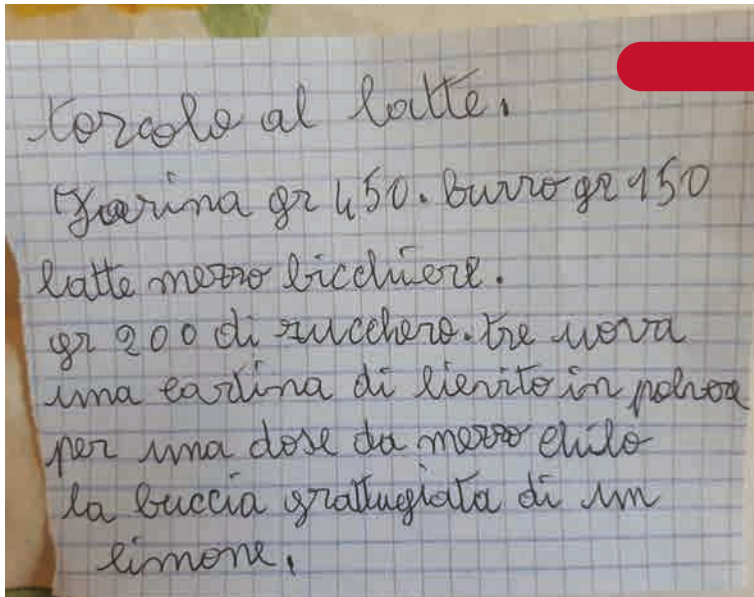 torcolo al latte.
Farina gr 450. burro gr 150
latte mezzo bicchiere.
gr 200 di zucchero. tre uova
una cartina di lievito in polvere
per una dose da mezzo chilo
la buccia grattugiata di un
limone.